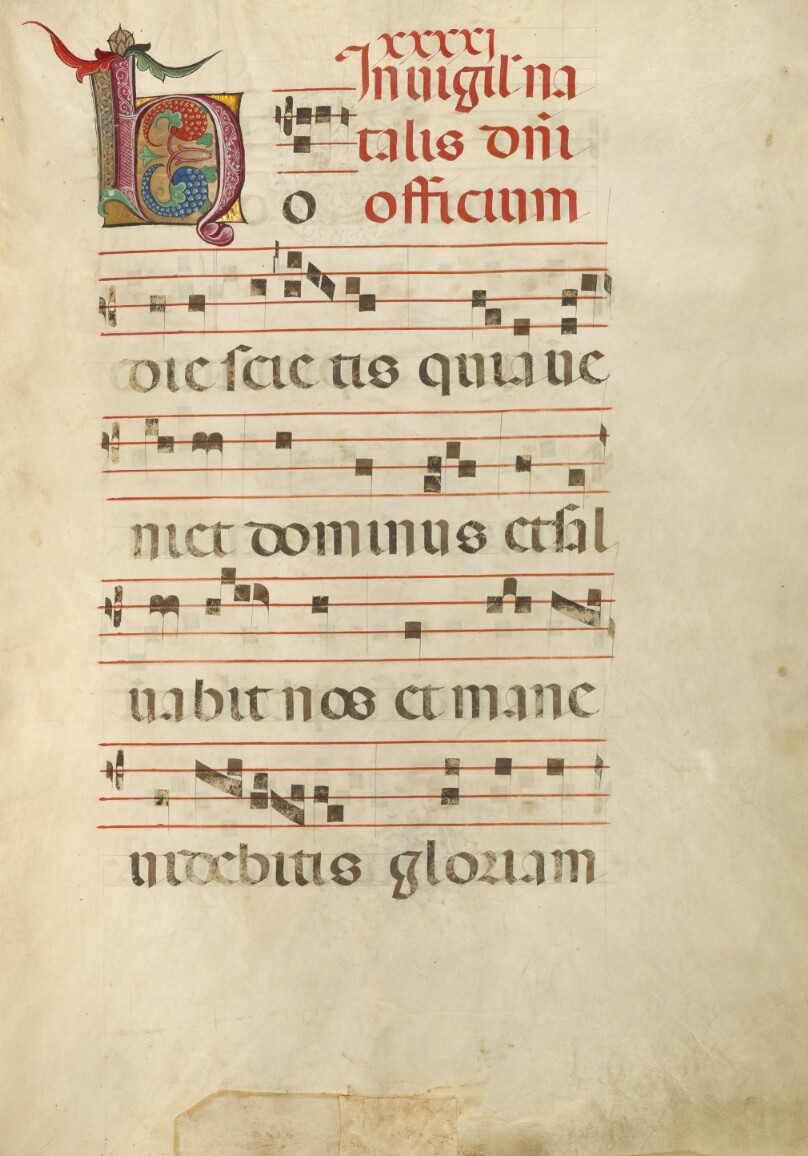 xxxxi
In uigil' na
talis dñi
Ho officium
die scietis quia ue
niet dominus et sal
uabit nos et mane
uidebitis gloriam